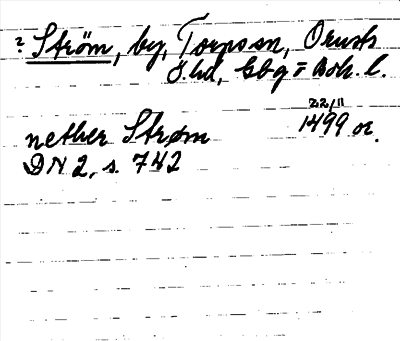 ? Ström, by, Torp sn, Orusts
V. hd, Gbg = Boh. l.
22/11
nether Strøm 1499 or.
DN 2, s. 742